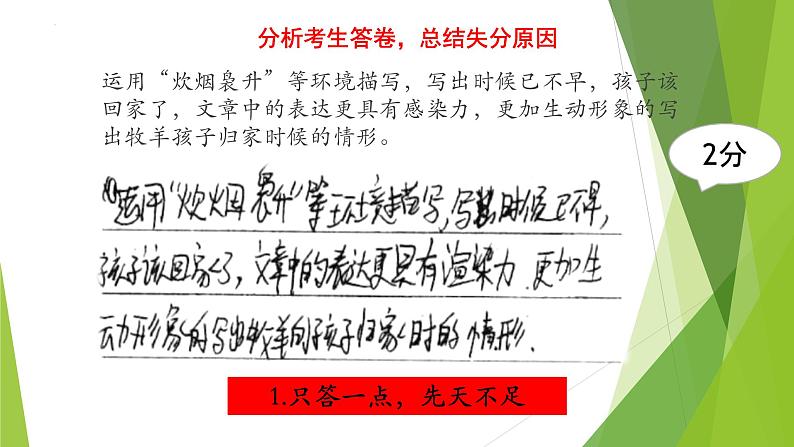 分析考生答卷，总结失分原因
运用“炊烟袅升”等环境描写，写出时候已不早，孩子该
回家了，文章中的表达更具有感染力，更加生动形象的写
出牧羊孩子归家时候的情形。
2分
运用“炊烟袅升”等环境描写，写出时候已不早，
孩子该回家了，文章中的表达更具有渲染力，更加生
动形象的写出牧羊的孩子归家时的情形.
1.只答一点，先天不足